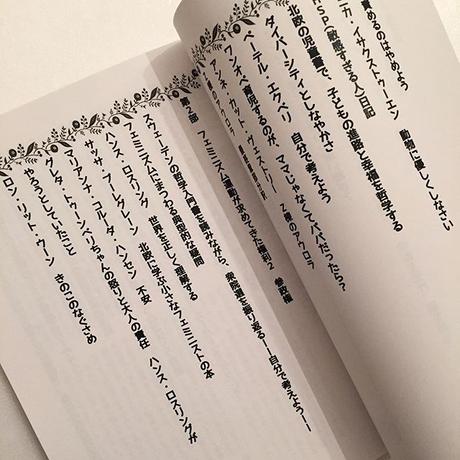 責めるのはやめよう
ニカ・イサクストゥーエン 動物に優しくしなさい
HSP(敏感すぎる人)日記
北欧の児童書で、子どもの進路と幸福を哲学する
ダイバーシティとしなやかさ
ペーテル・エクベリ 自分で考えよう
ワンオペ育児するのが、ママじゃなくてパパだったら?
アンネ・カット・ヴェストリー Z棟のアウロラ
第2回 フェミニズム運動が求めてきた権利2 参政権
スウェーデンの哲学入門書を読みながら、衆院選を振り返る――自分で考えよう――
フェミニズムにまつわる典型的な疑問
ハンス・ロスリング 世界を正しく理解する
サッサ・ブーレグレーン 北欧に学ぶ小さなフェミニストの本
マリアンナ・コルダ・ハンセン 不安
グレタ・トゥーンベリちゃんの怒りと大人の責任 ハンス・ロスリングが
やろうとしていたこと
ロン・リット・ウーン きのこのなぐさめ